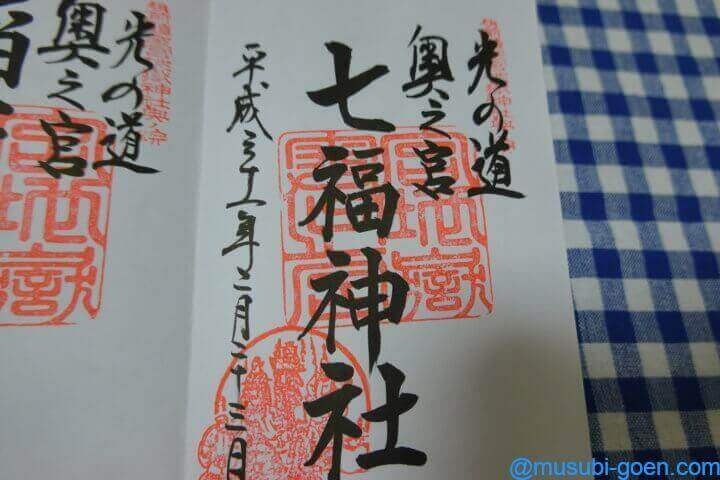 光の道
奥之宮
七福神社
平成三十一年二月二十三日
宮地嶽
光の道
奥之宮
宮地嶽
@musubi-goen.com